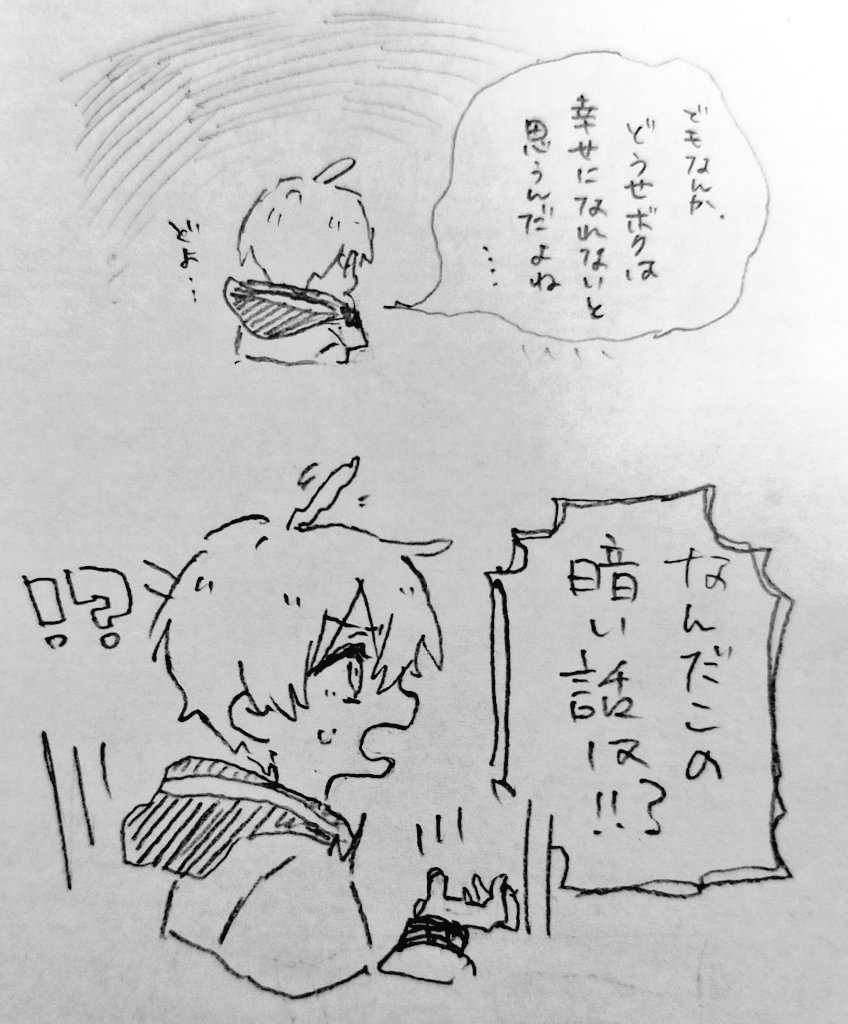 でもなんか、
どうせボクは
幸せになれないと
思うんだよね
…
どよ…
なんだこの
暗い話は!!?
!?